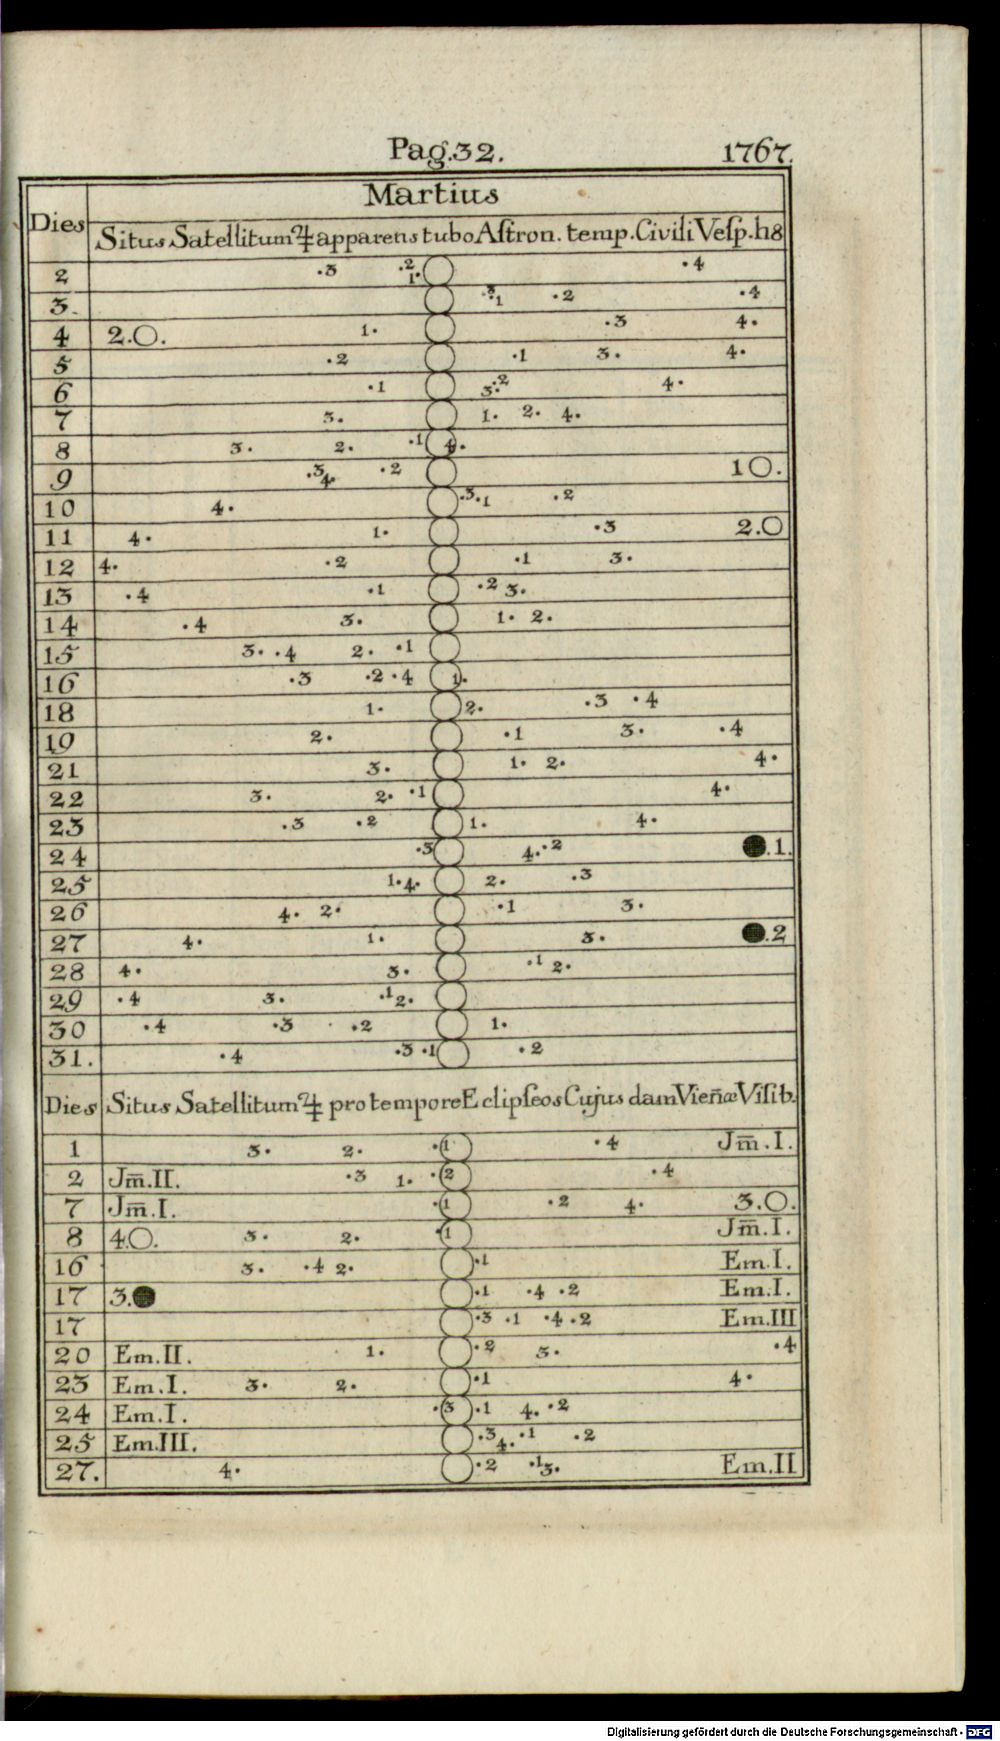 Pag.32. 1767.
Martius
Dies Situs Satellitum ♃ apparens tubo Aſtron. temp. Civili Veſp. h8
2 .3 .2 1. ◯ .4
3. ◯ .3 .1 .2 .4
4 2.◯. 1. ◯ .3 4.
5 .2 ◯ .1 3. 4.
6 .1 ◯ 3. .2 4.
7 3. ◯ 1. 2. 4.
8 3. 2. .1 ◯ 4.
9 .3 4. .2 ◯ 1◯.
10 4. ◯ .3 .1 .2
11 4. 1. ◯ .3 2.◯
12 4. .2 ◯ .1 3.
13 .4 .1 ◯ .2 3.
14 .4 3. ◯ 1. 2.
15 3. .4 2. .1 ◯
16 .3 .2 .4 ◯ 1.
18 1. ◯ 2. .3 .4
19 2. ◯ .1 3. .4
21 3. ◯ 1. 2. 4.
22 3. 2. .1 ◯ 4.
23 .3 .2 ◯ 1. 4.
24 .3 ◯ 4. .2 ●.1.
25 1. 4. ◯ 2. .3
26 4. 2. ◯ .1 3.
27 4. 1. ◯ 3. ●.2
28 4. 3. ◯ .1 2.
29 .4 3. .1 2. ◯
30 .4 .3 .2 ◯ 1.
31. .4 .3 .1 ◯ .2
Dies Situs Satellitum ♃ pro tempore Eclipſeos Cujus dam Vien̄æ Viſib.
1 3. 2. .1 ◯ .4 Jm̄.I.
2 Jm̄.II. .3 1. .2 ◯ .4
7 Jm̄.I. .1 ◯ .2 4. 3.◯.
8 4◯. 3. 2. .1 ◯ Jm̄.I.
16 3. .4 2. ◯ .1 Em.I.
17 3.● ◯ .1 .4 .2 Em.I.
17 ◯ .3 .1 .4 .2 Em.III
20 Em.II. 1. ◯ .2 3. .4
23 Em.I. 3. 2. ◯ .1 4.
24 Em.I. .3 ◯ .1 4. .2
25 Em.III. ◯ .3 4. .1 .2
27. 4. ◯ .2 .1 3. Em.II
Digitalisierung gefördert durch die Deutsche Forschungsgemeinschaft - DFG